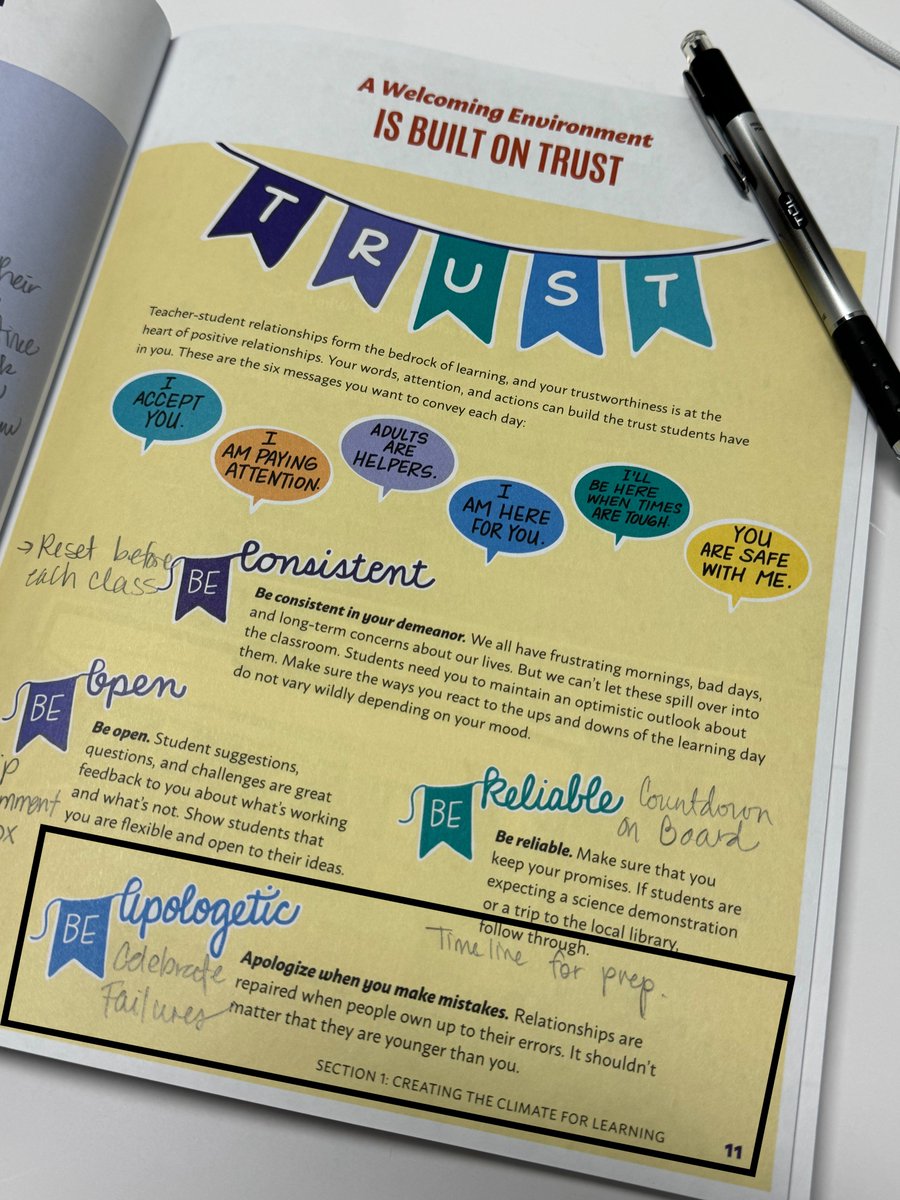 A Welcoming Environment
IS BUILT ON TRUST
TRUST
Teacher-student relationships form the bedrock of learning, and your trustworthiness is at the
heart of positive relationships. Your words, attention, and actions can build the trust students have
in you. These are the six messages you want to convey each day:
I
ACCEPT
YOU.
I
AM PAYING
ATTENTION.
ADULTS
ARE
HELPERS.
I
AM HERE
FOR YOU.
I'LL
BE HERE
WHEN TIMES
ARE TOUGH.
YOU
ARE SAFE
WITH ME.
→Reset before
each class
BE Consistent
Be consistent in your demeanor. We all have frustrating mornings, bad days,
and long-term concerns about our lives. But we can't let these spill over into
the classroom. Students need you to maintain an optimistic outlook about
them. Make sure the ways you react to the ups and downs of the learning day
do not vary wildly depending on your mood.
BE Open
Be open. Student suggestions,
questions, and challenges are great
feedback to you about what's working
and what's not. Show students that
you are flexible and open to their ideas.
BE Reliable
Countdown
on Board
Be reliable. Make sure that you
keep your promises. If students are
expecting a science demonstration
or a trip to the local library,
follow through.
Timeline for prep.
BE Apologetic
Celebrate
Failures
Apologize when you make mistakes. Relationships are
repaired when people own up to their errors. It shouldn't
matter that they are younger than you.
SECTION 1: CREATING THE CLIMATE FOR LEARNING
11
TUL